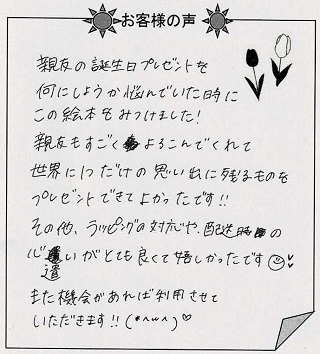 お客様の声
親友の誕生日プレゼントを
何にしようか悩んでいた時に
この絵本をみつけました!
親友もすごくよろこんでくれて
世界に1つだけの思い出に残るものを
プレゼントできてよかったです!!
その他、ラッピングの対応や、配送時の
心遣いがとても良くて嬉しかったです☺♡♡
また機会があれば利用させて
いただきます!! (*^ω^)♡